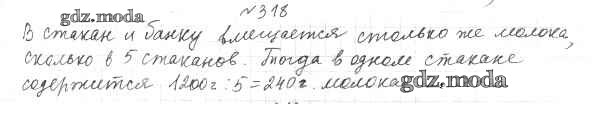 №318
gdz.moda
В стакан и банку вмещается столько же молока,
сколько в 5 стаканов. Тогда в одном стакане
содержится 1200г : 5 = 240г. молока
gdz.moda